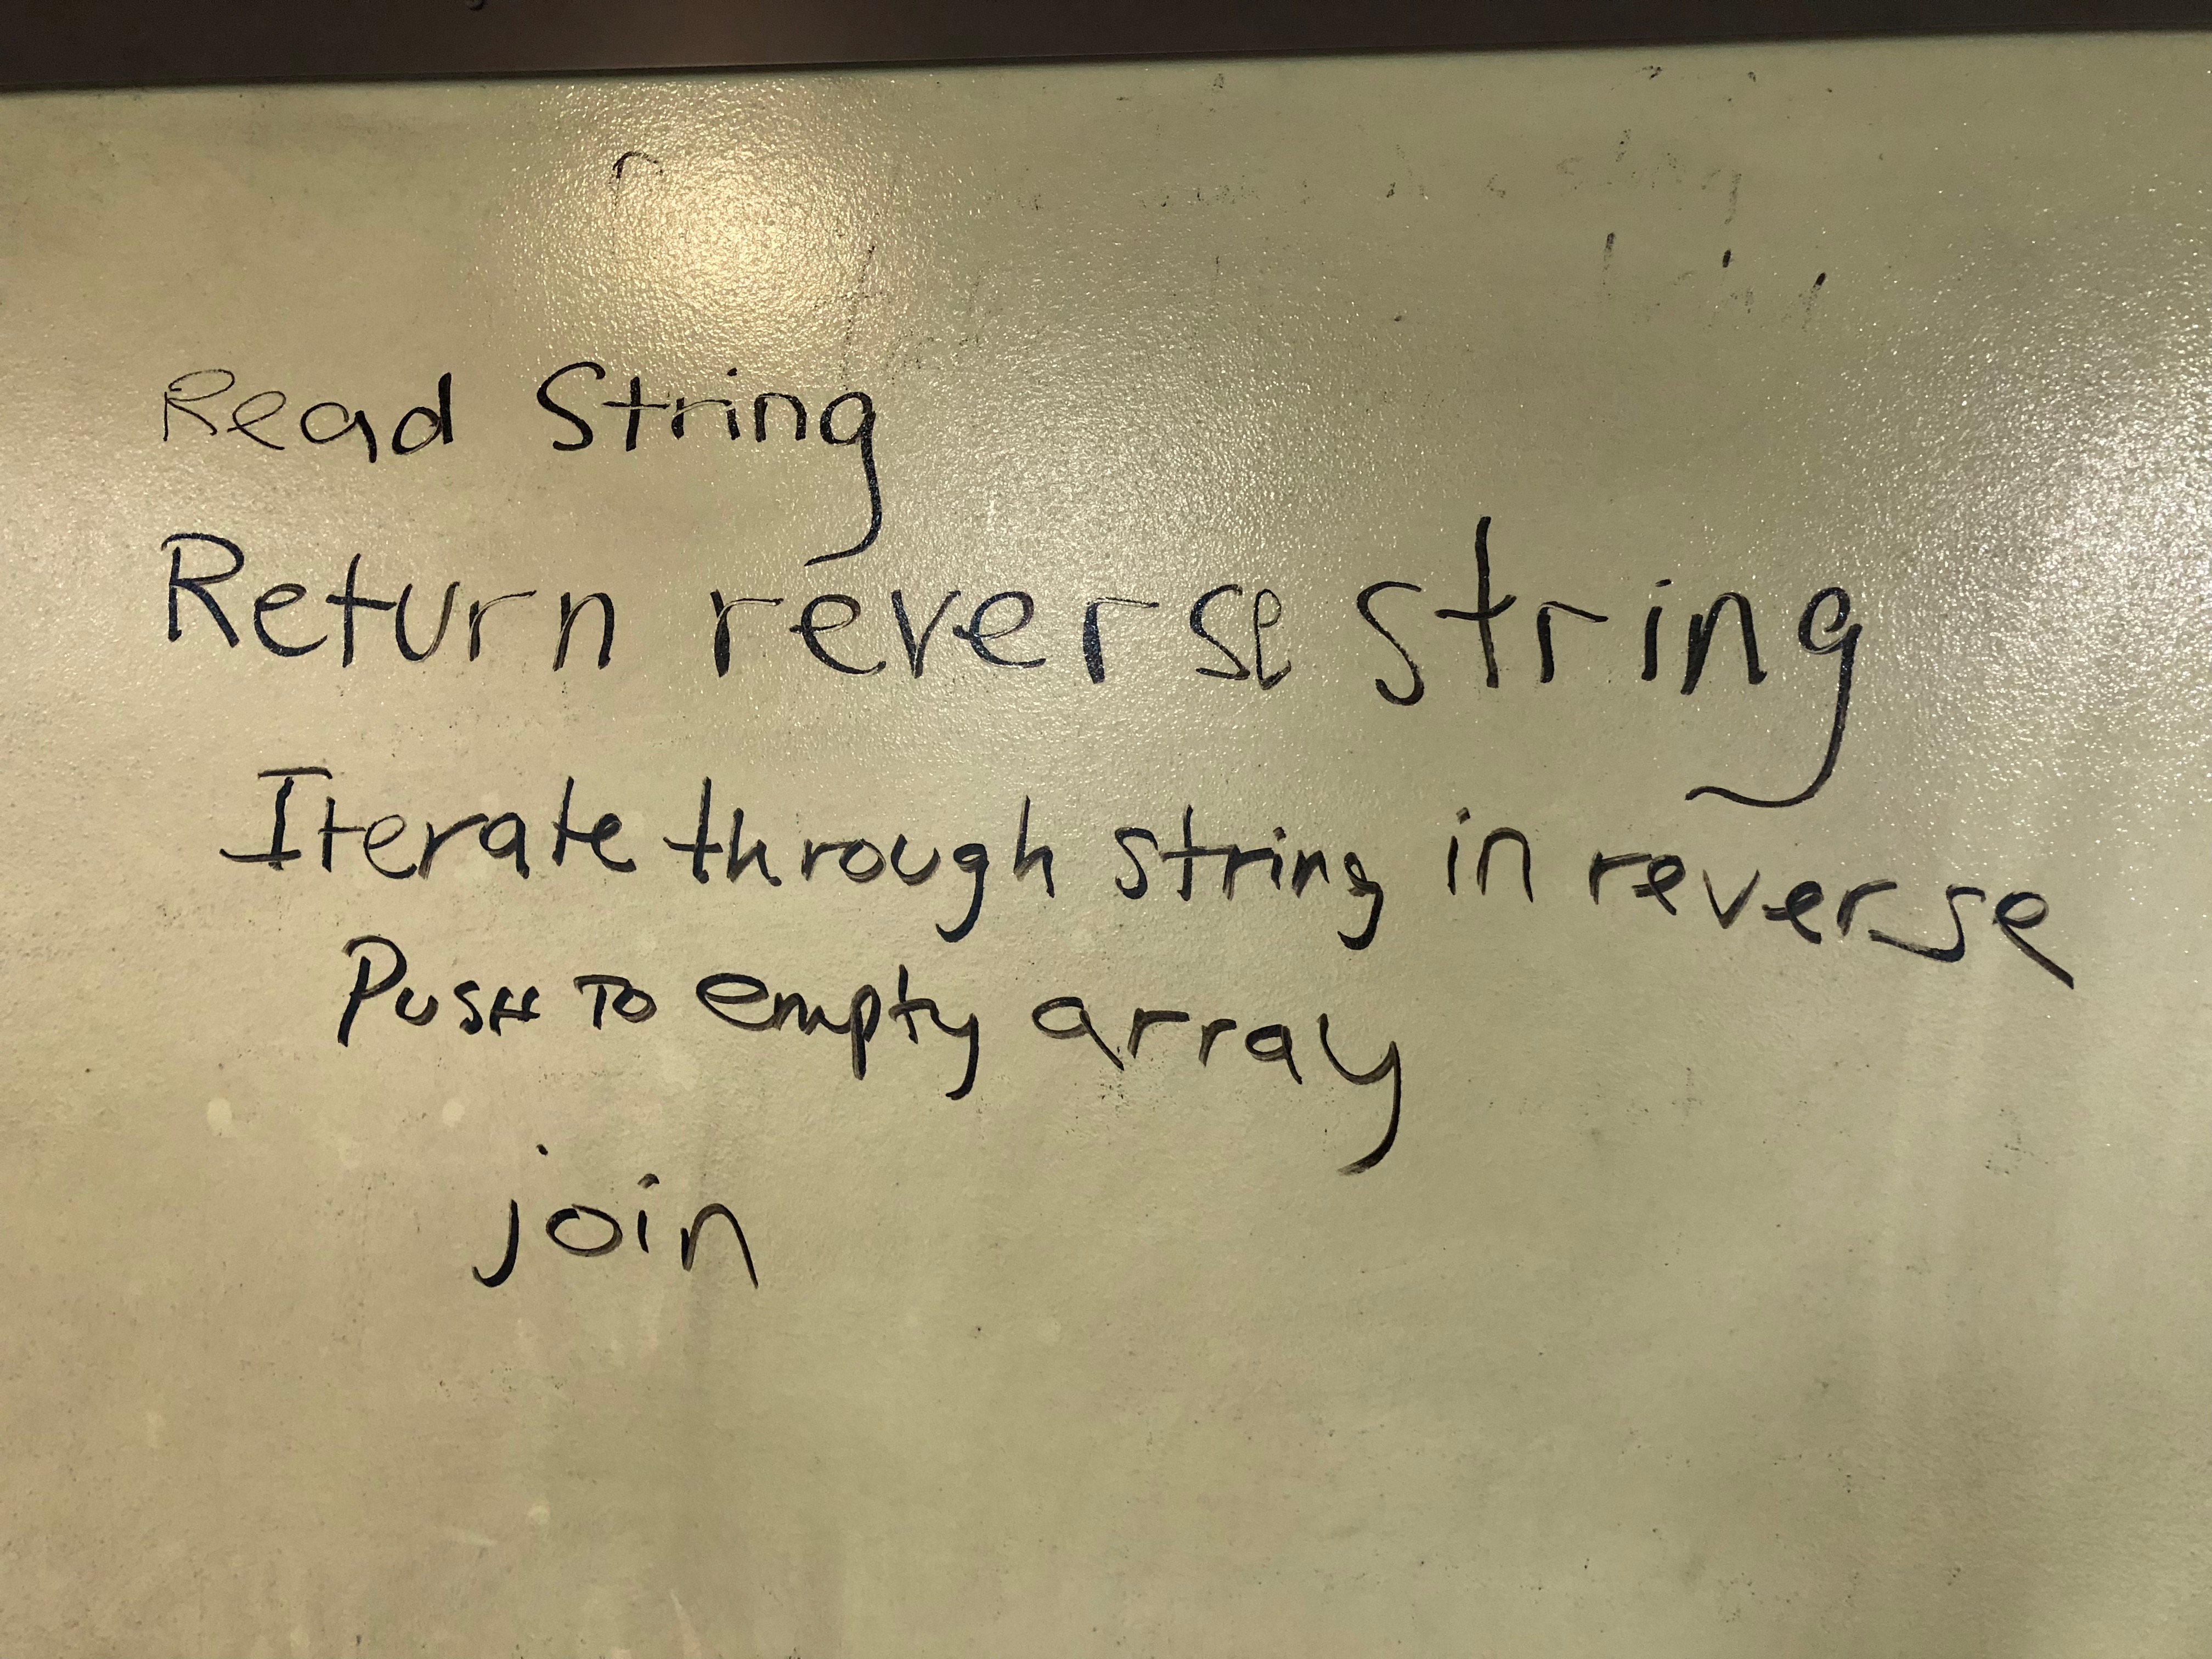 Read String
Return reverse string
Iterate through string in reverse
PUSH TO empty array
join